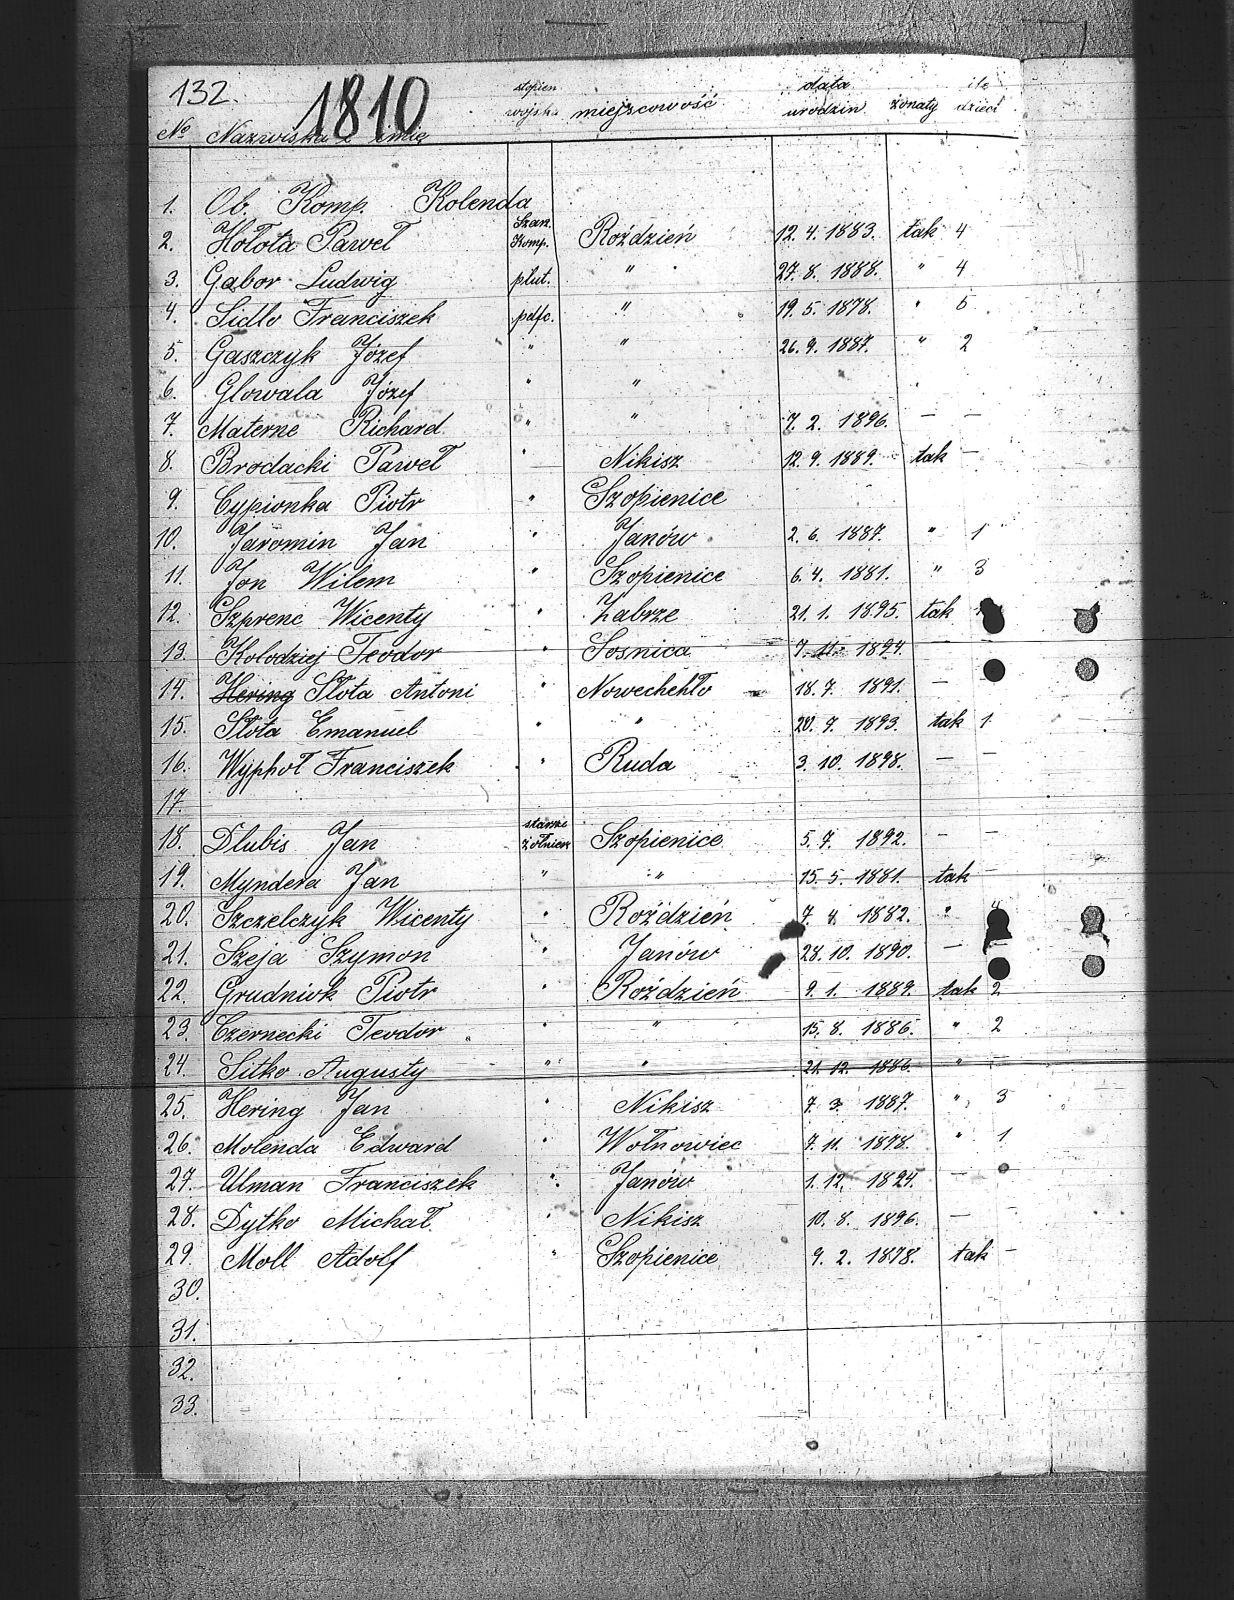 132. 1810
No Nazwiska i imię stopien wojsku miejscowość data urodzin żonaty ile dzieci
1. Ob. Komp. Kolenda
2. Hołota Paweł Szan. Komp. Roździeń 12. 4. 1883. tak 4
3. Gabor Ludwig plut. " 27. 8. 1888. " 4
4. Sidlo Franciszek pdfc. " 19. 5. 1878. " 5
5. Gaszczyk Józef " " 26. 9. 1887. " 2
6. Glowala Józef " "
7. Materne Richard " " 7. 2. 1896. — —
8. Brodacki Paweł " Nikisz 12. 9. 1889. tak —
9. Cypionka Piotr " Szopienice
10. Jaromin Jan " Janów 2. 6. 1887. " 1
11. Jon Wilem " Szopienice 6. 4. 1881. " 3
12. Szprenc Wicenty " Zabrze 21. 1. 1895. tak
13. Kolodziej Teodor " Sosnica 7. 11. 1894. — —
14. Hering Słota Antoni " Nowechehło 18. 7. 1891. —
15. Słota Emanuel " " 20. 9. 1893. tak 1
16. Wyphoł Franciszek " Ruda 3. 10. 1898. — —
17.
18. Dlubis Jan starsi żołnierz Szopienice 5. 7. 1892. — —
19. Myndera Jan " " 15. 5. 1881. tak —
20. Szczelczyk Wicenty " Roździeń 7. 4. 1882. " 4
21. Szeja Szymon " Janów 28. 10. 1890. — —
22. Grudniok Piotr " Roździeń 9. 1. 1889. tak 2
23. Czernecki Teodor " " 15. 8. 1886. " 2
24. Sitko Augusty " " 21. 12. 1886. " —
25. Hering Jan " Nikisz 7. 3. 1887. " 3
26. Molenda Edward " Wołnowiec 7. 11. 1878. " 1
27. Ulman Franciszek " Janów 1. 12. 1894. —
28. Dytko Michał " Nikisz 10. 8. 1896. — —
29. Moll Adolf " Szopienice 9. 2. 1878. tak —
30.
31.
32.
33.